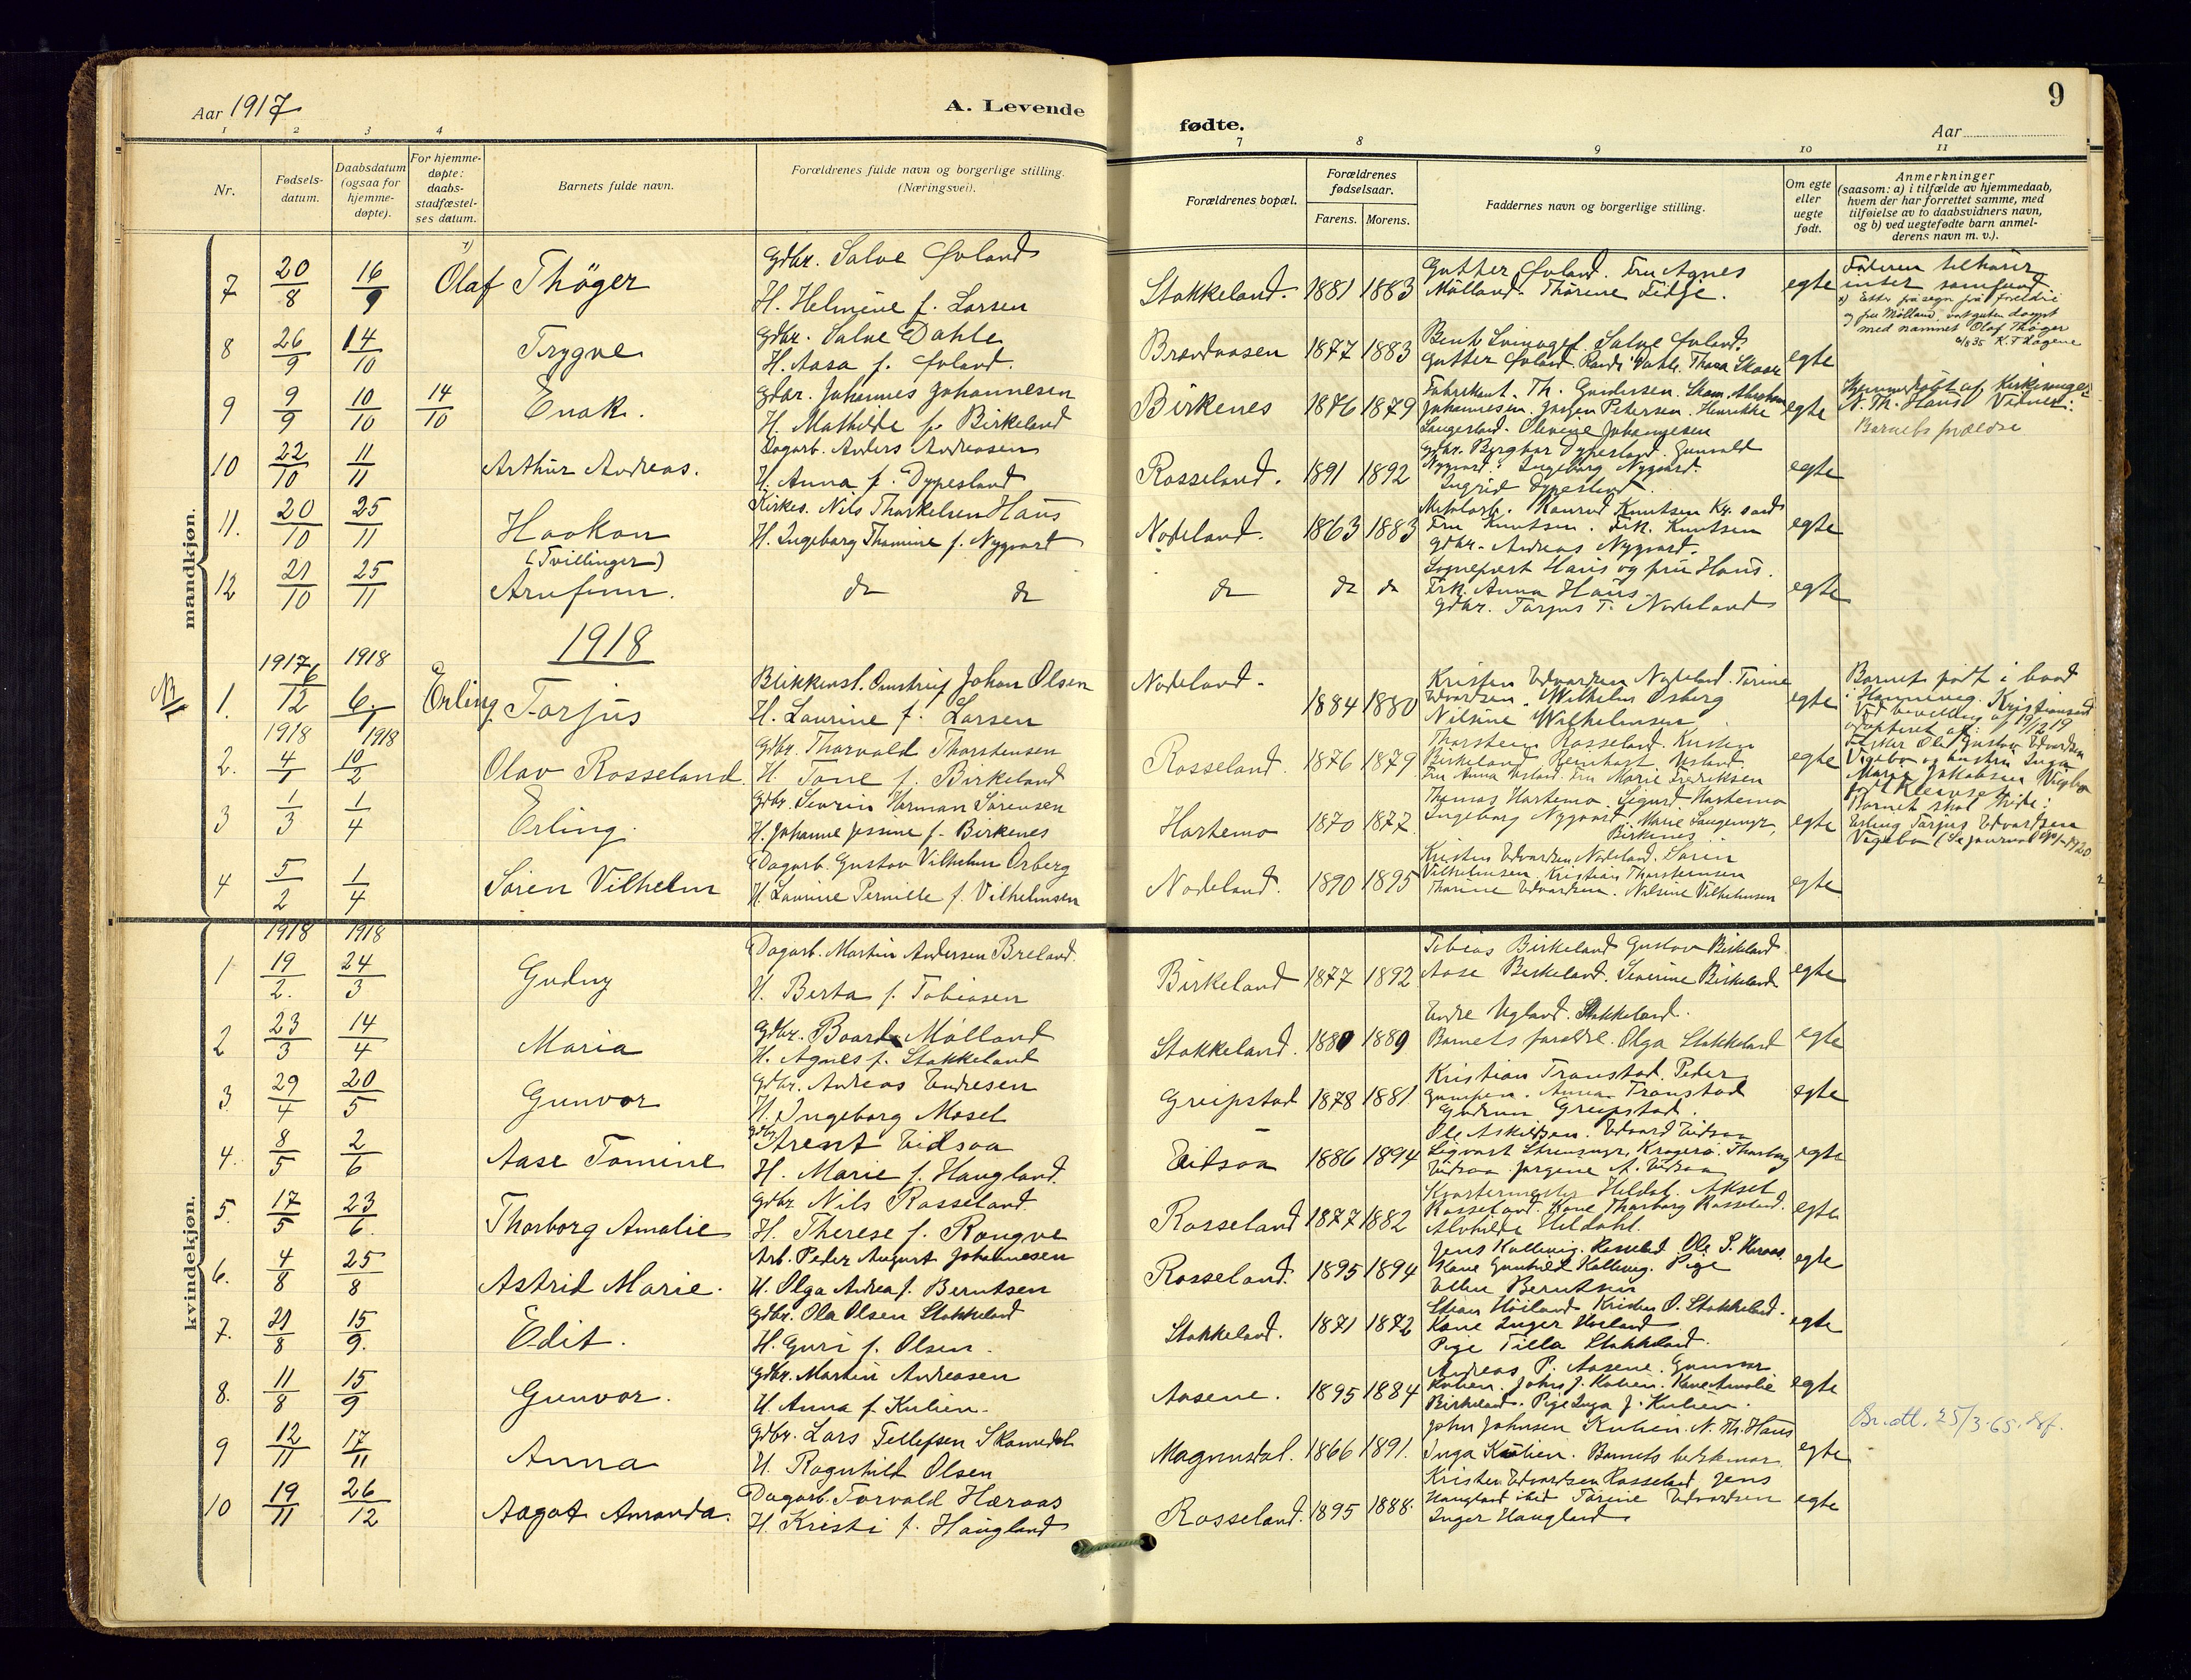 Aar 1917
A. Levende
fødte.
9
Aar
1 2 3 4
7 8 9 10 11
Nr.
Fødsels-datum.
Daabsdatum (ogsaa for hjemme-døpte).
For hjemme-døpte: daabs-stadfæstel-ses datum.
Barnets fulde navn.
Forældrenes fulde navn og borgerlige stilling. (Næringsvei).
Forældrenes bopæl.
Forældrenes fødselsaar.
Farens. Morens.
Faddernes navn og borgerlige stilling.
Om egte eller uegte født.
Anmerkninger
(saasom: a) i tilfælde av hjemmedaab,
hvem der har forrettet samme, med
tilføielse av to daabsvidners navn,
og b) ved uegtefødte barn anmel-
derens navn m. v.).
mandkjøn.
7 20/8 16/9 Olaf Thøger Gdbr. Salve Øvland
H. Helmine f. Larsen
Stokkeland. 1881 1883 Gutter Øvland. Fru Agnes
Mølland. Thorine Tidje. egte Faderen tilhører
intet samfund.
med namnet Olaf Thøger
8 26/9 14/10 Trygve Gdbr. Salve Dahle
H. Aasa f. Øvland.
1877 1883 Salve Øvland.
Gutter Øvland. egte
9 9/9 10/10 14/10 Enok. Gdbr. Johannes Johannesen
H. Mathilde f. Birkeland
Birkenes 1876 1879 Fabrikant. Th. Gundersen.
Johannesen. Jørgen Petersen. Henrikke
Olevine Johannesen egte Hjemmedøbt af Kirkesanger
N. Th. Haus Vidner:
Barnets forældre
10 22/10 11/11 Arthur Andreas. Dagarb. Anders Andreasen
H. Anna f. Dypesland
Rosseland. 1891 1892 Gdbr. Dypesland. Gunvald
Nygaard. Ingeborg Nygaard.
Ingrid Dypesland. egte
11. 20/10 25/11 Haakon Kirkes. Nils Thorkelsen Haus
H. Ingeborg Thomine f. Nygaard
Nodeland. 1863 1883 Konrad Knutsen Kr. sand
Fru Knutsen. Frk. Knutsen
Gdbr. Andreas Nygaard. egte
(Tvillinger)
12 21/10 25/11 Arnfinn. do do
do do do Sogneprest Haus og fru Haus.
Frk. Anna Haus.
Gdbr. Torjus T. Nodeland egte
1918
1917 1918
NB 1. 6/12 6/1 Erling Torjus Johan Olsen
H. Laurine f. Larsen
Nodeland. 1884 1880 Kristen Edvardsen Nodeland. Torine
Edvardsen. Wilhelm Osberg
Nilsine Wilhelmsen egte Barnet født i baad
Kristiansand
Ved bevilling af 19/12 19
adopteret af:
Fisker Ole Gustav Edvardsen
Vigebo og hustru Inga
Maria Jakobsen Vigebo
Barnet skal hede:
Erling Torjus Edvardsen
Vigebo
1918 1918
2. 4/1 10/2 Olav Rosseland Gdbr. Thorvald Thorstensen
H. Tone f. Birkeland
Rosseland. 1876 1879 Thorstein Rosseland. Kristen
Birkeland. Reinhart Usland.
Fru Anna Usland. Fru Marie Fredriksen egte
3 1/3 1/4 Erling. Gdbr. Severin Herman Sørensen
H. Johanne Jessine f. Birkenes
Hortemo 1870 1877 Thomas Hortemo. Sigurd Hortemo
Ingeborg Nygaard. Marie Laugemyr,
Birkenes egte
4 5/2 1/4 Søren Vilhelm Dagarb. Gustav Vilhelm Osberg
H. Laurine Pernille f. Vilhelmsen
Nodeland. 1890 1895 Kristen Edvardsen Nodeland. Søren
Vilhelmsen. Kristian Thorsteinsen
Thorine Edvardsen. Nilsine Vilhelmsen egte
kvindekjøn.
1918 1918
1 19/2. 24/3 Gudny Dagarb. Martin Andersen Breland.
H. Berta f. Tobiasen
Birkeland 1877 1892 Tobias Birkeland Gustav Birkeland
Aase Birkeland. Severine Birkeland egte
2 23/3 14/4 Maria Gdbr. Baard Mølland
H. Agnes f. Stokkeland
Stokkeland. 1880 1889 Endre Ugland. Stokkeland.
Barnets forældre. Olga Stokkeland egte
3 29/4 20/5 Gunvor Gdbr. Andreas Endresen
H. Ingeborg Mosel
Greipstad 1878 1881 Kristian Tronstad. Peder
Anna Tronstad
Gudrun Greipstad. egte
4. 8/5 2/6 Aase Tomine Gdbr Arent Eidsaa
H. Marie f. Haugland.
Eidsaa 1886 1894 Ole Askildsen. Edvard Eidsaa
Sigvart Strømmyr, Kragerø. Thorborg
Eidsaa Jørgine A. Eidsaa egte
5. 17/5 23/6. Thorborg Amalie Gdbr Nils Rosseland.
H. Therese f. Rougve
Rosseland 1877 1882 Kvartermester Heldal. Aksel
Rosseland. Kone Thorborg Rosseland.
Alvhilde Heldahl. egte
6. 4/8 25/8 Astrid Marie. Arb. Peder August Johannesen
H. Olga Andrea f. Berntsen
Rosseland. 1895 1894 Jens Kallevig. Rosseland. Ole S. Heraas.
Kone Gunhild Kallevig. Pige
Ellen Berntsen egte
7. 21/8 15/9. Edit. Gdbr. Ola Olsen Stokkeland
H. Guri f. Olsen.
Stokkeland. 1871 1872 Stian Høiland Kristen O. Stokkeland.
Kone Inger Høiland
Pige Tilla Stokkeland. egte
8. 11/8 15/9 Gunvor. Gdbr. Martin Andreasen
H. Anna f. Kulien.
Aasene. 1895 1884 Andreas P. Aasene. Gunnar
Kulien. John J. Kulien. Kone Amalie
Birkeland. Pige Inga J. Kulien. egte
9 12/11 17/11 Anna Gdbr. Lars Tellefsen Skomedal
H. Ragnhild Olsen
Magnusdal. 1866 1891. John Johnsen Kulien. N. Th. Haus
Inga Kulien. Barnets bedstemor egte Br.att. 25/3-65.
10 19/11 26/12 Aagot Amanda. Dagarb. Torvald Heraas
H. Kristi f. Haugland
Rosseland. 1895 1888. Kristen Edvardsen Rosseland. Jens
Haugland ibid Torine Edvardsen
Inger Haugland egte